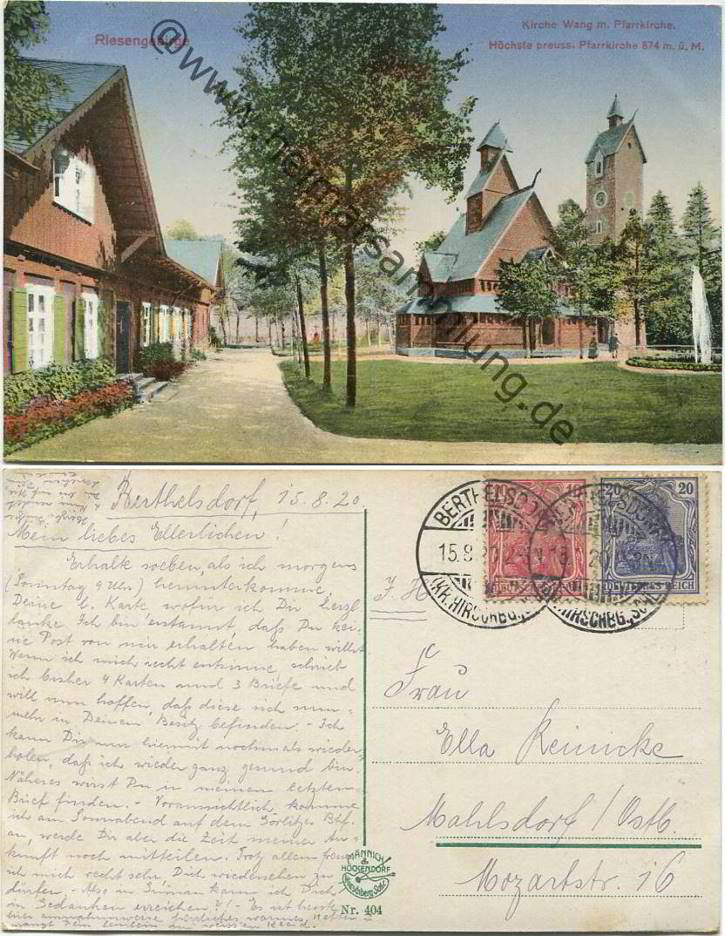 Riesengebirge
Kirche Wang m. Pfarrkirche.
Höchste preuss. Pfarrkirche 874 m. ü. M.
@www.heimatsammlung.de
Berthelsdorf, 15.8.20
Mein liebes Ellerlichen!
Erhalte soeben, als ich morgens
(Sonntag 9 Uhr) herunterkomme,
Deine l. Karte wofür ich Dir herzl.
danke. Ich bin erstaunt, daß Du kei-
ne Post von mir erhalten haben willst
Wenn ich mich recht entsinne, schrieb
ich bisher 4 Karten und 3 Briefe und
will nun hoffen, daß diese sich nun-
mehr in Deinen Besitz befinden. - Ich
kann Dir nur hiermit nochmals wieder-
holen, daß ich wieder ganz gesund bin.
Näheres wirst Du in meinen letzten
Brief finden. - Voraussichtlich komme
ich am Sonnabend auf dem Görlitzer Bhf.
an, werde Dir aber die Zeit meiner An-
kunft noch mitteilen. Trotz allem freue
ich mich recht sehr, Dich wiedersehen zu
dürfen. - Also in kann ich Dich
in Gedanken erreichen?! - Es ist heute
hier warmes, Wetter
BERTHELSDORF
15.8.20
(KR. HIRSCHBG., SCHL.)
DEUTSCHES REICH
20 20
DEUTSCHES REICH
Frau
Ella Reinicke
Mahlsdorf / Ostb.
Mozartstr. 16
MÄNNICH
&
HÖCKENDORF
Nr. 404